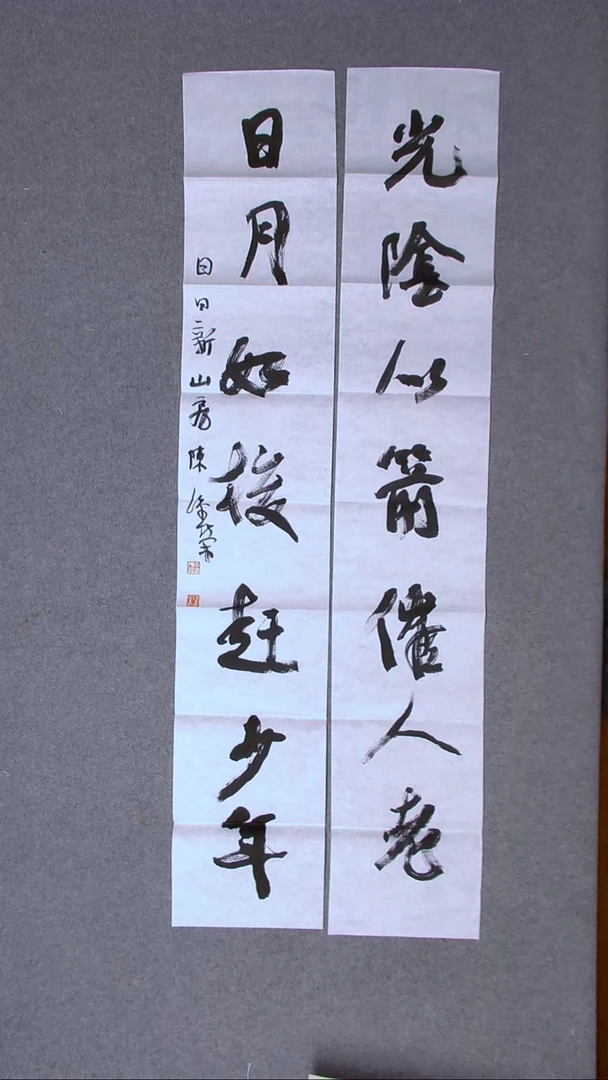 光陰似箭催人老
日月如梭趕少年
日日新山房陳